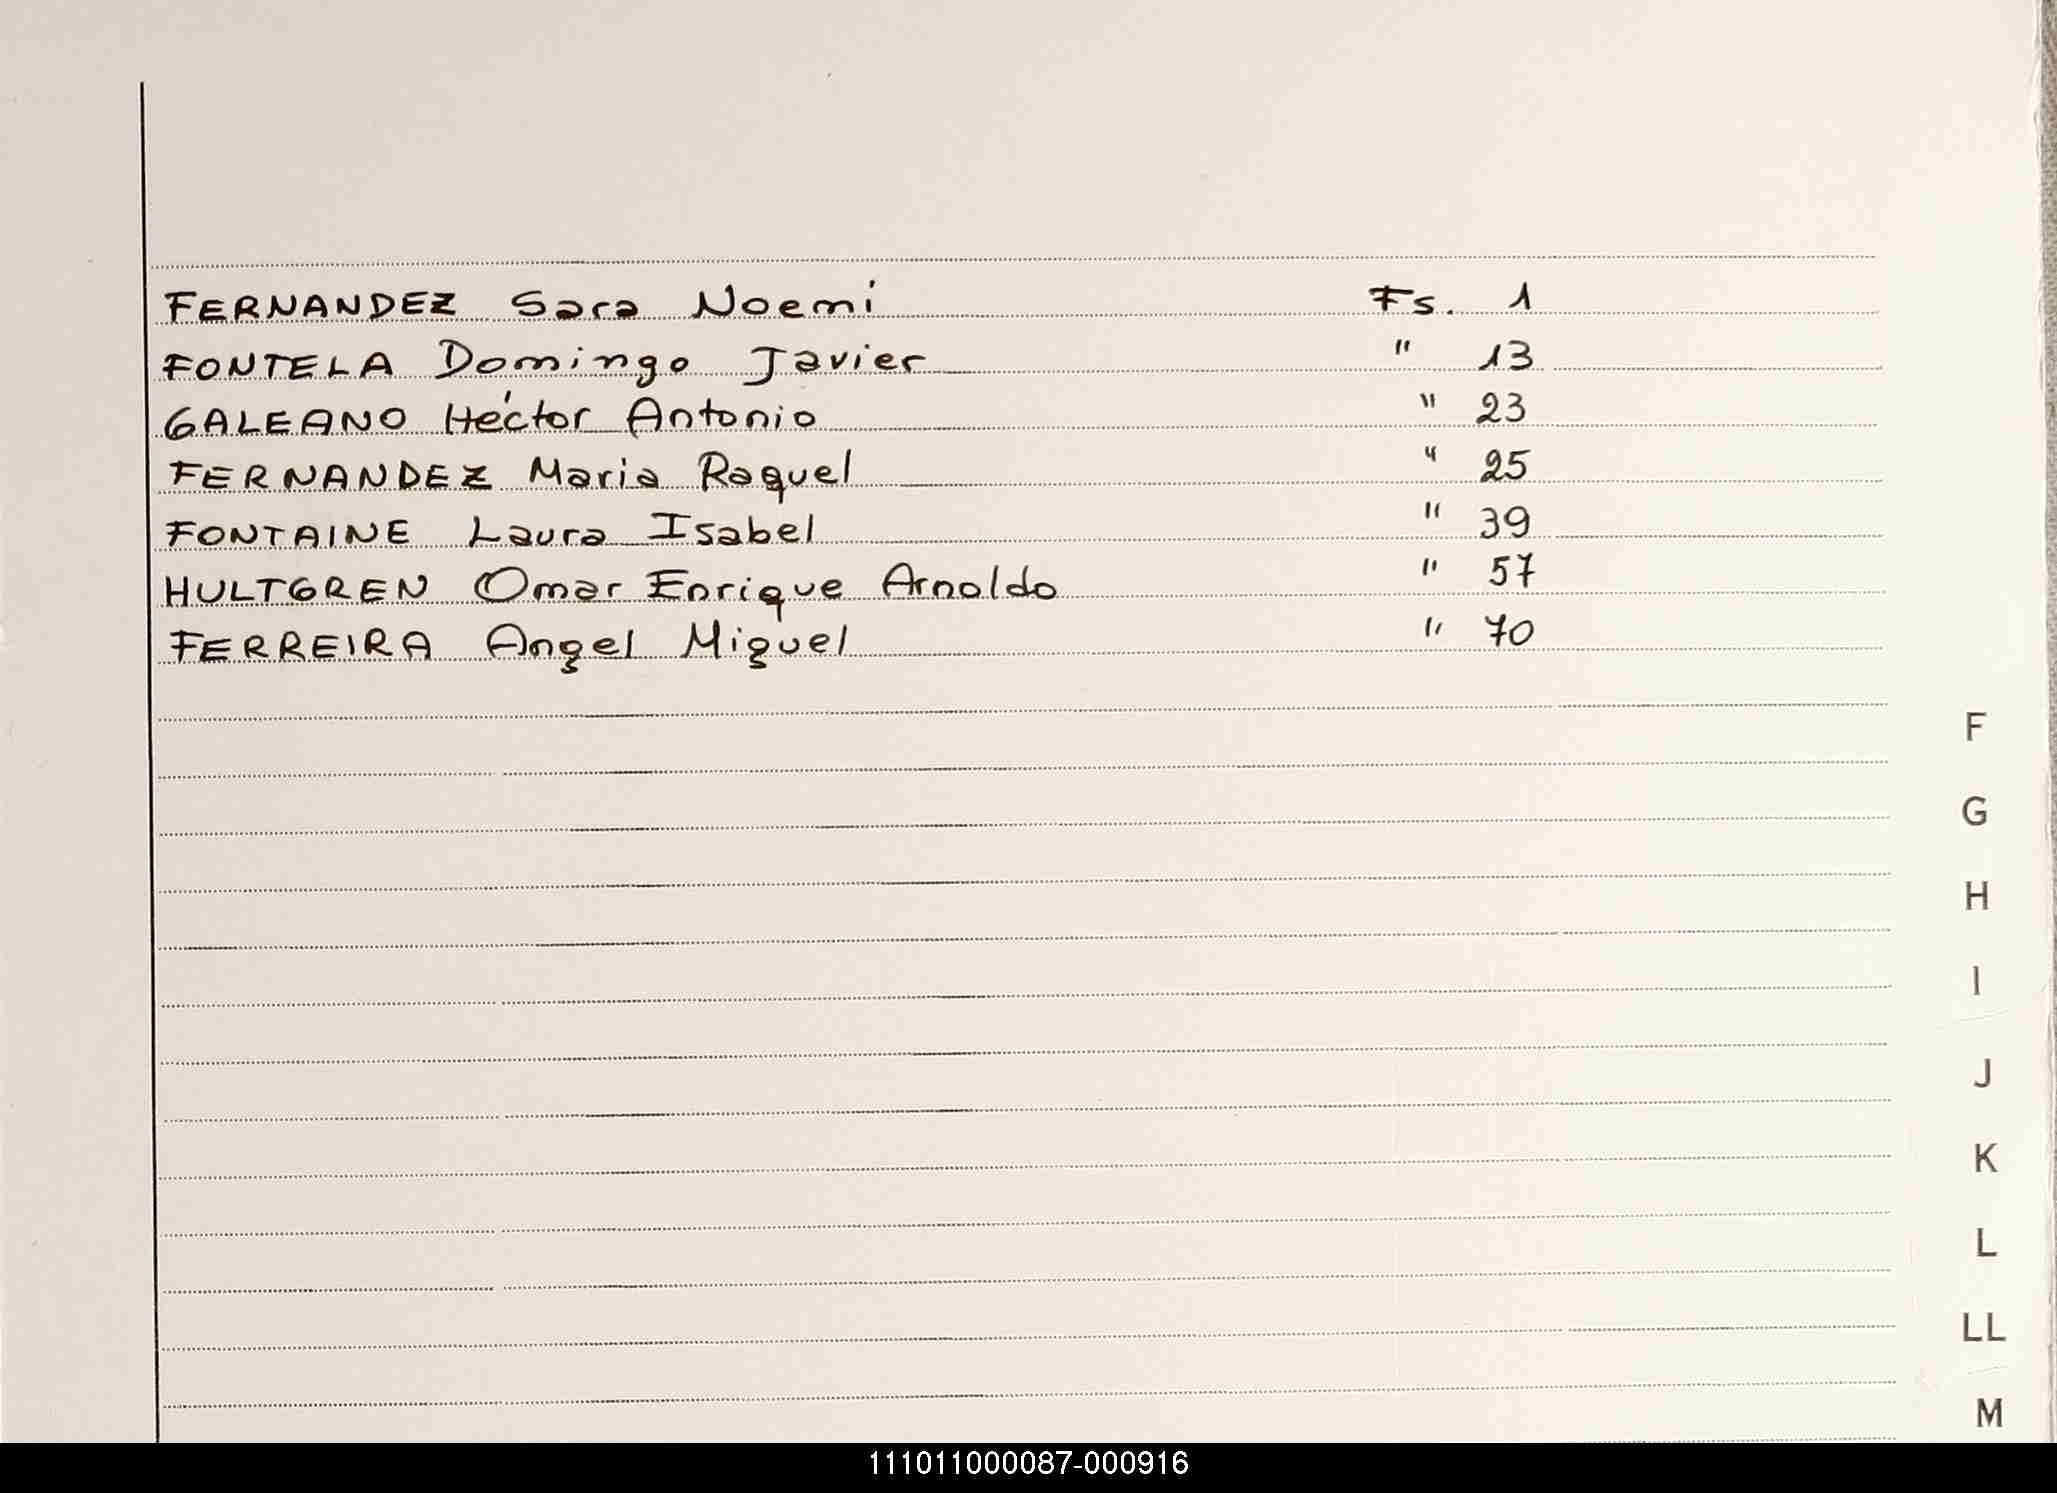 FERNANDEZ Sara Noemí Fs. 1
FONTELA Domingo Javier " 13
GALEANO Héctor Antonio " 23
FERNANDEZ Maria Raquel " 25
FONTAINE Laura Isabel " 39
HULTGREN Omar Enrique Arnoldo " 57
FERREIRA Angel Miguel " 70
F
G
H
I
J
K
L
LL
M
111011000087-000916